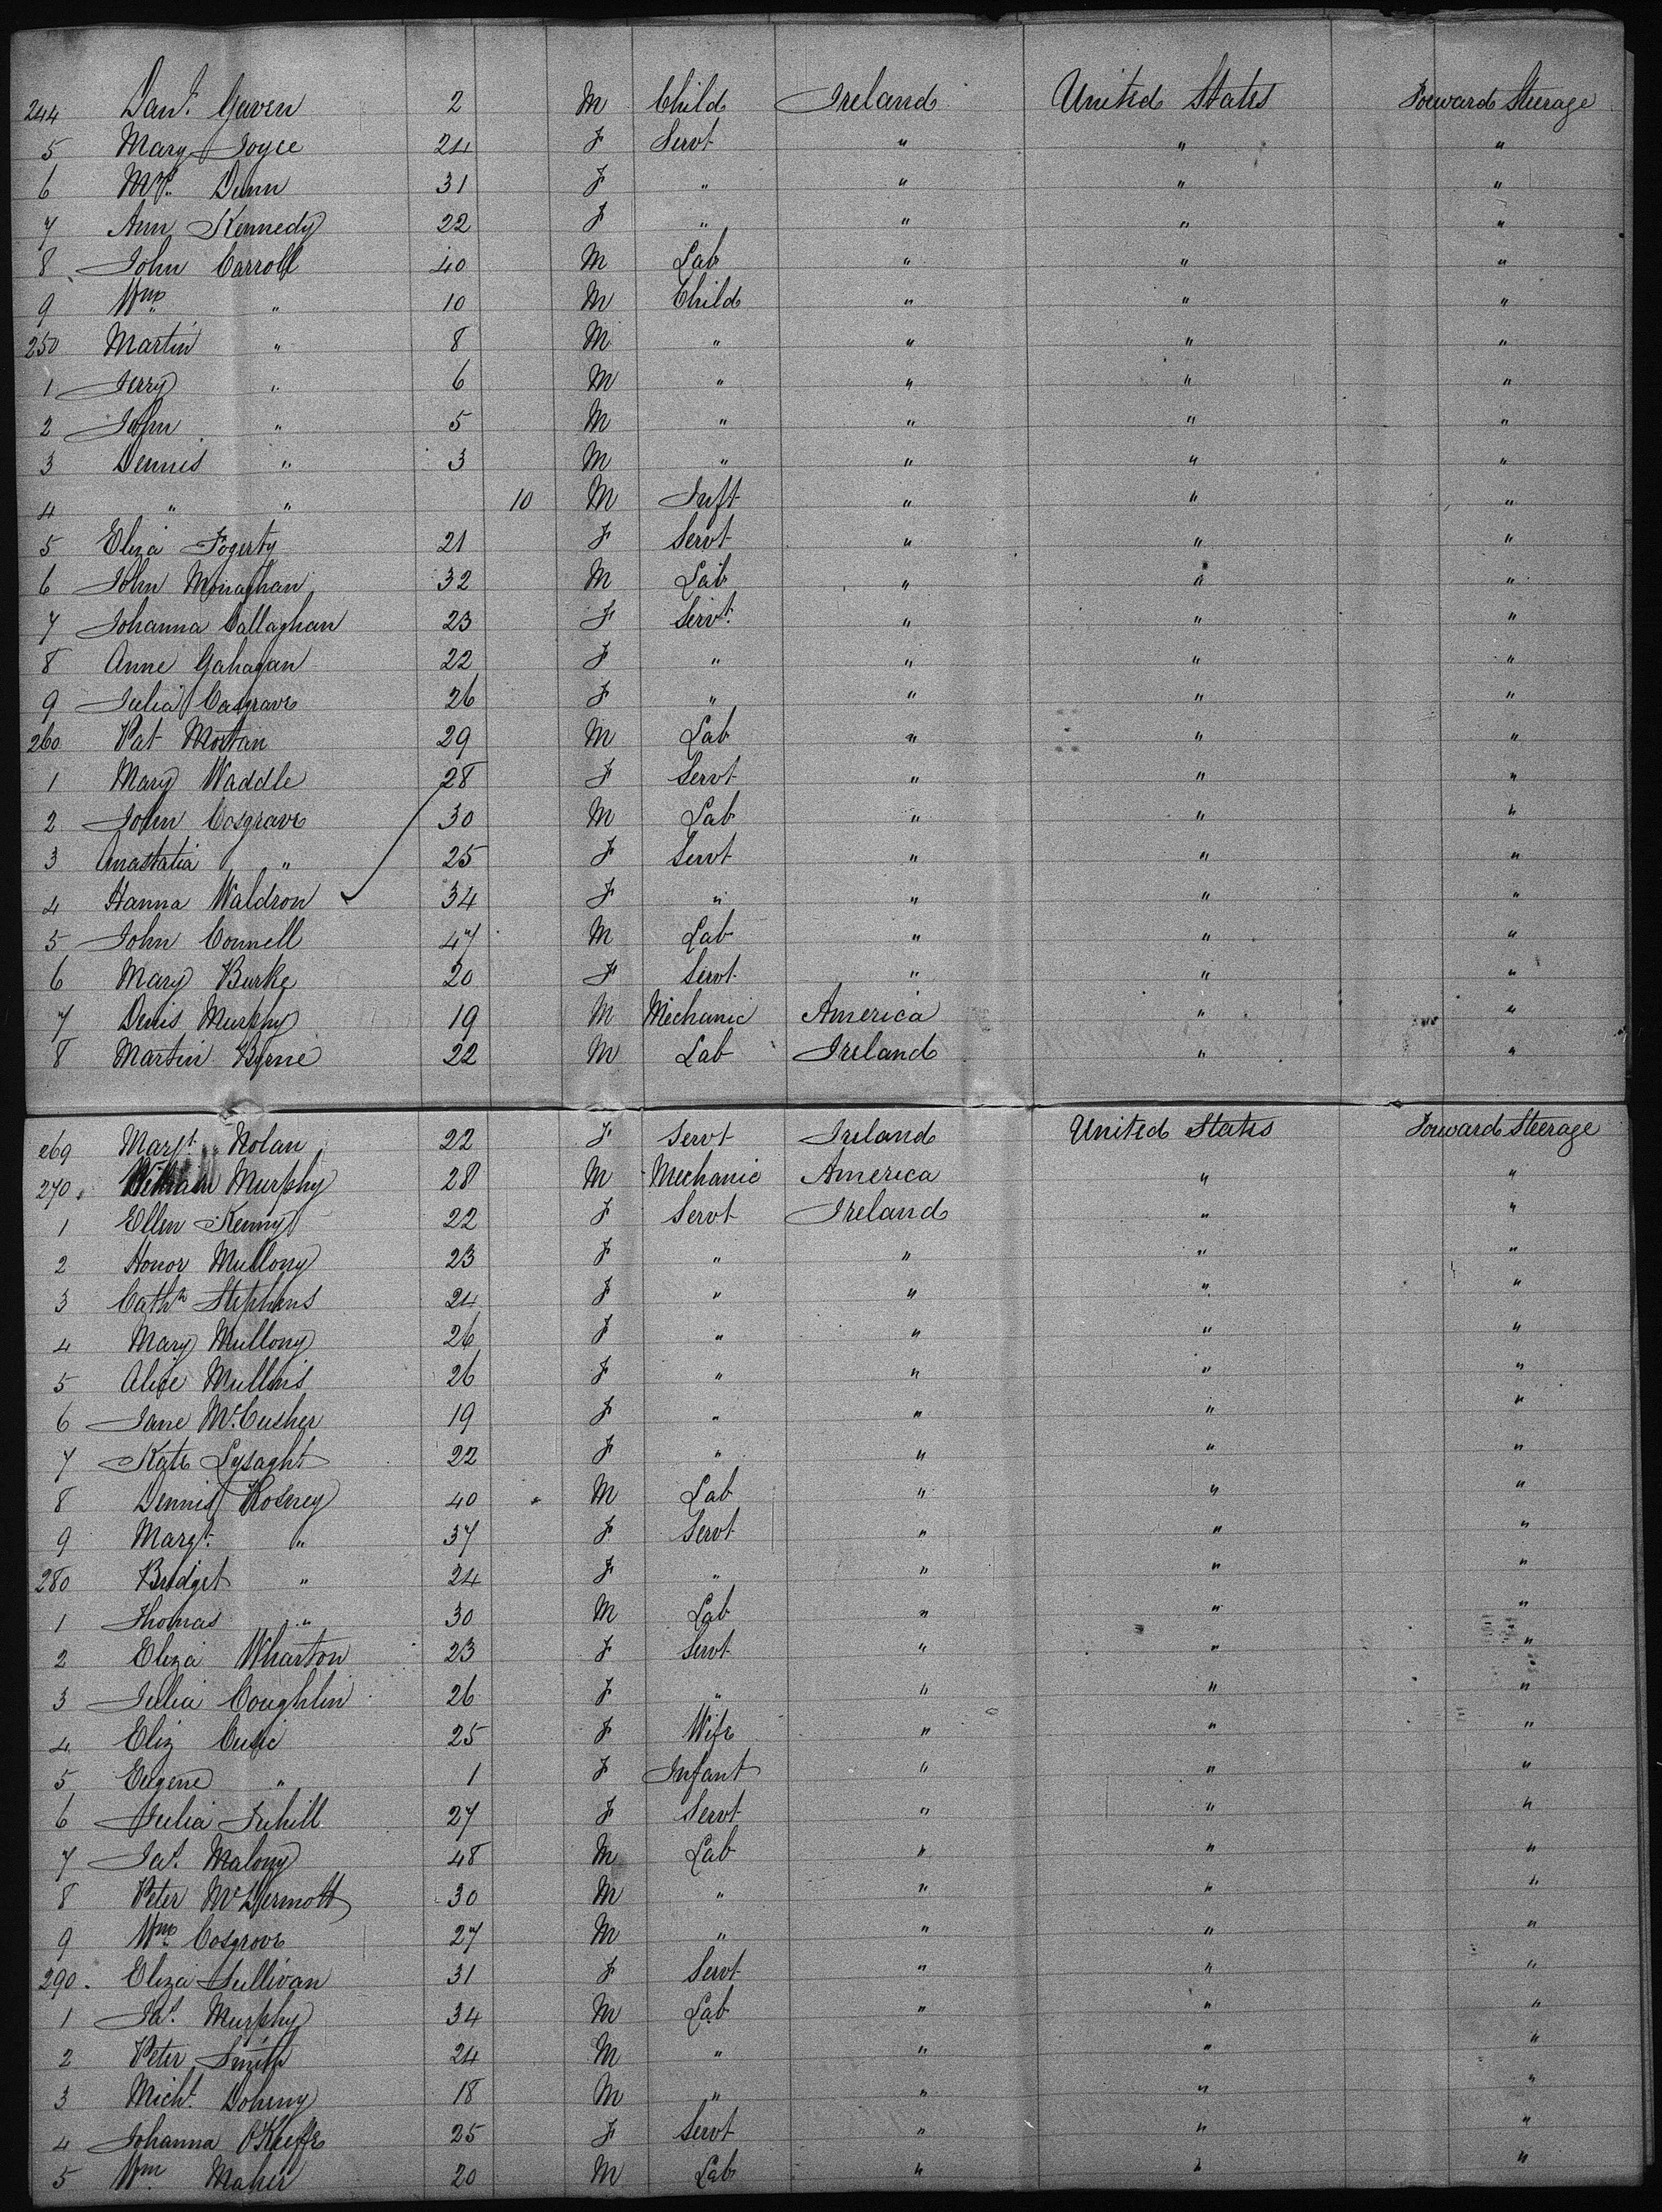 244 Danl. Gaven 2 M Child Ireland United States Forward Steerage
5 Mary Joyce 24 F Servt " " "
6 Mrs. Dunn 31 F " " " "
7 Ann Kennedy 22 F " " " "
8 John Carroll 40 M Lab " " "
9 Wm " 10 M Child " " "
250 Martin " 8 M " " " "
1 Jerry " 6 M " " " "
2 John " 5 M " " " "
3 Dennis " 3 M " " " "
4 " " 10 M Inft " " "
5 Eliza Fogerty 21 F Servt " " "
6 John Monaghan 32 M Lab " " "
7 Johanna Callaghan 23 F Servt. " " "
8 Anne Gahagan 22 F " " " "
9 Julia Casgrave 26 F " " " "
260 Pat Mortan 29 M Lab " " "
1 Mary Waddle 28 F Servt " " "
2 John Cosgrave 30 M Lab " " "
3 Anastatia " 25 F Servt " " "
4 Hanna Waldron 34 F " " " "
5 John Connell 47 M Lab " " "
6 Mary Burke 20 F Servt " " "
7 Denis Murphy 19 M Mechanic America " "
8 Martin Byrne 22 M Lab Ireland " "
269 Margt. Nolan 22 F Servt Ireland United States Forward Steerage
270 William Murphy 28 M Mechanic America " "
1 Ellen Kenny 22 F Servt Ireland " "
2 Honor Mullony 23 F " " " "
3 Cathn Stephens 24 F " " " "
4 Mary Mullony 26 F " " " "
5 Alice Mullins 26 F " " " "
6 Jane McCusher 19 F " " " "
7 Kate Lysaght 22 F " " " "
8 Dennis 40 M Lab " " "
9 Margt. " 37 F Servt " " "
280 Bridget " 24 F " " " "
1 Thomas " 30 M Lab " " "
2 Eliza Wharton 23 F Servt " " "
3 Julia Coughlin 26 F " " " "
4 Eliz Cusic 25 F Wife " " "
5 Eugene " 1 F Infant " " "
6 Julia Juhill 27 F Servt " " "
7 Jas. Malony 48 M Lab " " "
8 Peter McDermott 30 M " " " "
9 Wm. Cosgrove 27 M " " " "
290 Eliza Sullivan 31 F Servt " " "
1 Jas. Murphy 34 M Lab " " "
2 Peter Smith 24 M " " " "
3 Michl. Doheny 18 M " " " "
4 Johanna O'Keeffe 25 F Servt " " "
5 Wm. Maher 20 M Lab " " "